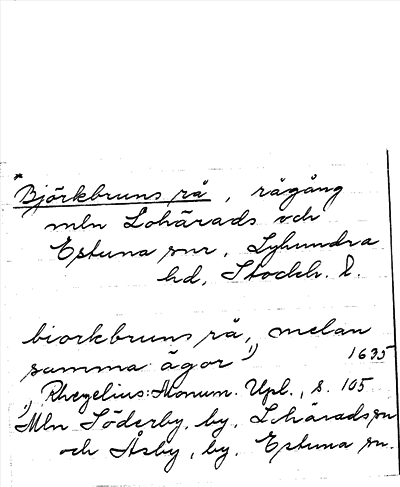 *Björkbruns rå, rågång
mln Lohärads och
Estuna snr, Lyhundra
hd, Stockh. l.
biorkbruns rå, melan
samma ägor ¹) 1635
¹) Rhezelius: Monum. Upl., s. 105
Mln Söderby, by, Lohärads sn
och Åsby, by, Estuna sn.